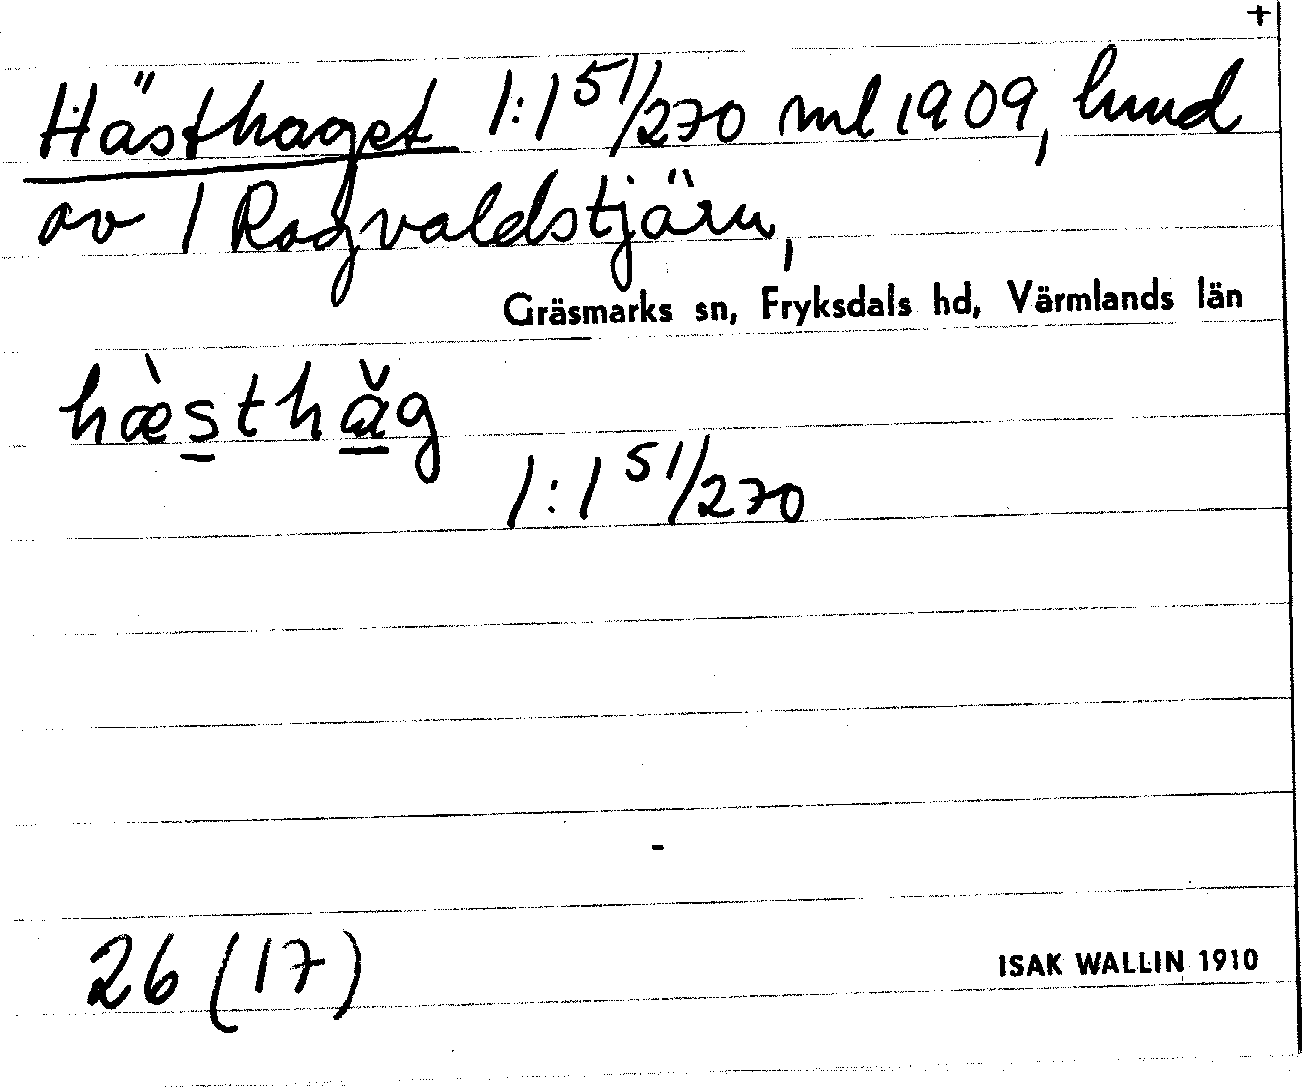 +
Hästhaget 1:1 51/270 ml 1909, hmd
av 1 Ragvaldstjärn,
Gräsmarks sn, Fryksdals hd, Värmlands län
hæ̀sthǎg
1:1 51/270
26 (17)
ISAK WALLIN 1910